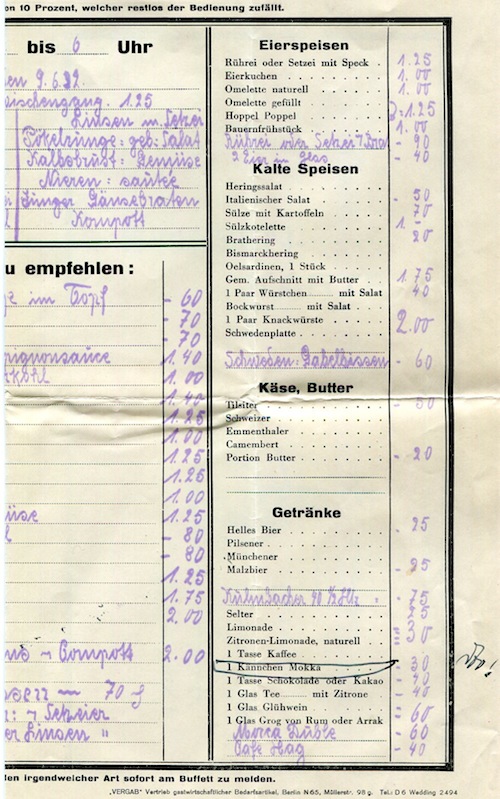 on 10 Prozent, welcher restlos der Bedienung zufällt.
bis 6 Uhr
9.6.32.
1.25
Linsen m. Setzei
Pökelzunge: geb: Salat
Kalbsbrust: Gemüse
Nieren: sautée
Junger Gänsebraten
Kompott
u empfehlen:
im Topf - 60
- 70
- 70
pignonsauce 1.40
1.00
1.40
1.25
1.00
1.25
1.25
1.00
1.25
- 80
- 80
1.25
1.75
2.00
Compott 2.00
70
Setzeier
Linsen "
Eierspeisen
Rührei oder Setzei mit Speck . 1.25
Eierkuchen 1.00
Omelette naturell 1.00
Omelette gefüllt
Hoppel Poppel 1.25
Bauernfrühstück 1.00
Rührei oder Setzei - 90
2 Eier im Glas - 40
Kalte Speisen
Heringssalat
Italienischer Salat - 50
Sülze mit Kartoffeln 70
Sülzkotelette
Brathering 20
Bismarckhering
Oelsardinen, 1 Stück
Gem. Aufschnitt mit Butter 1.75
1 Paar Würstchen mit Salat 40
Bockwurst mit Salat
1 Paar Knackwürste 2.00
Schwedenplatte
Schweden: Gabelbissen - 60
Käse, Butter
Tilsiter - 50
Schweizer
Emmenthaler
Camembert
Portion Butter - 20
Getränke
Helles Bier - 25
Pilsener
Münchener
Malzbier - 25
Kulmbacher - 75
Selter 75
Limonade
Zitronen-Limonade, naturell 30
1 Tasse Kaffee
1 Kännchen Mokka - 30
1 Tasse Schokolade oder Kakao - 40
1 Glas Tee mit Zitrone - 40
1 Glas Glühwein
1 Glas Grog von Rum oder Arrak 60
Mocca Duble - 60
Cafe Hag - 40
den irgendwelcher Art sofort am Buffett zu melden.
„VERGAB" Vertrieb gastwirtschaftlicher Bedarfsartikel, Berlin N65, Müllerstr. 98 g. Tel.: D 6 Wedding 2494